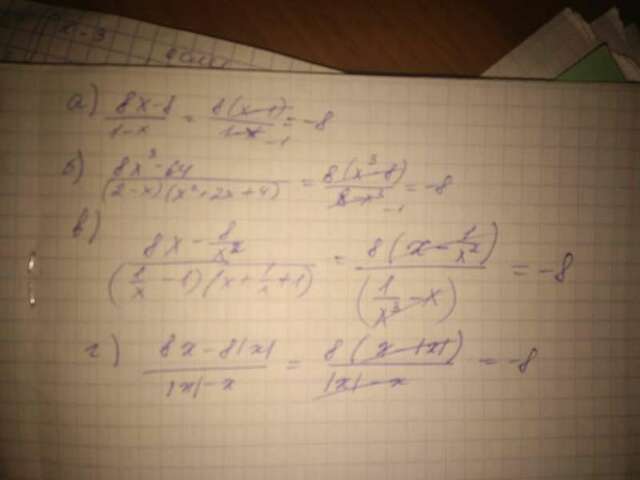 x-3
а) (8x-8)/(1-x) = 8(x-1)/(1-x) = -8
-1
б) (8x³-64)/((2-x)(x²+2x+4)) = 8(x³-8)/(8-x³) = -8
-1
в) (8x - 8/x²)/((1/x - 1)(x + 1/x + 1)) = 8(x - 1/x²)/(1/x³ - x) = -8
г) (8x-8|x|)/(|x|-x) = 8(x-|x|)/(|x|-x) = -8